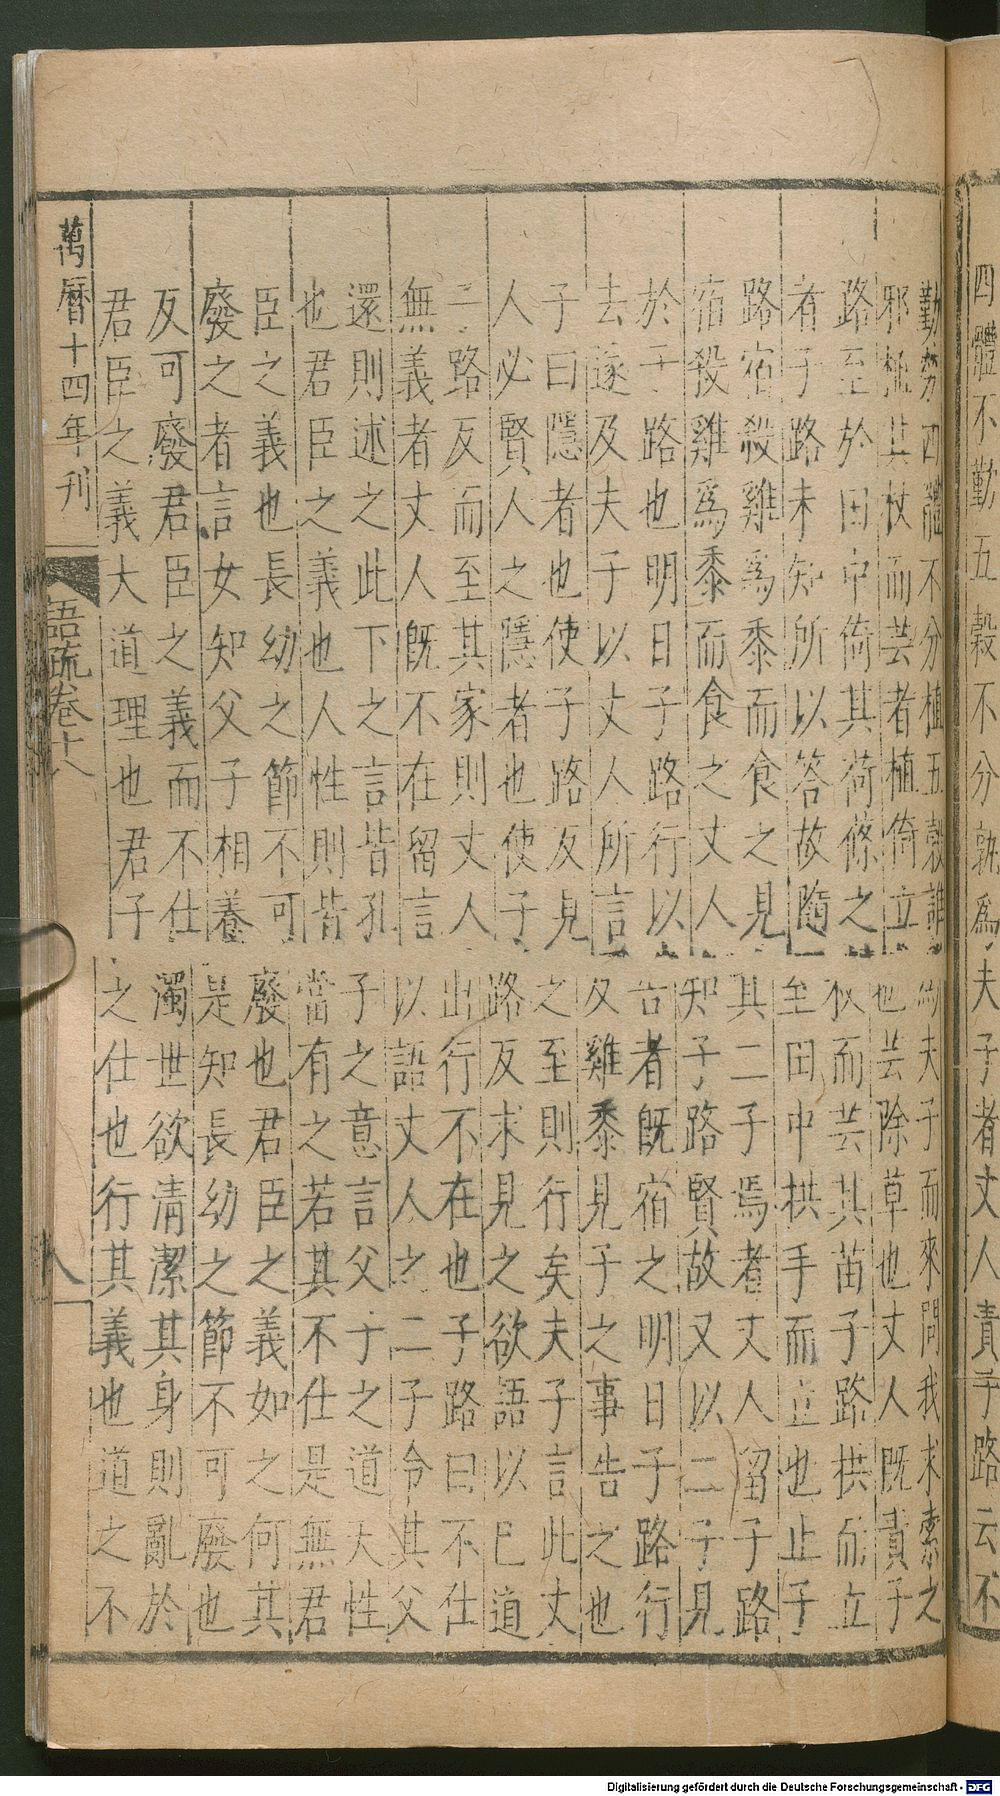 四體不勤五穀不分孰爲夫子者丈人責子路云不
勤勞四體不分植五穀誰爲夫子而來問我求索之
邪植其杖而芸者植倚立也芸除草也丈人既責子
路至於田中倚其荷蓧之杖而芸其苗子路拱而立
者子路未知所以答故隨至田中拱手而立也止子
路宿殺雞爲黍而食之見其二子焉者丈人留子路
宿殺雞爲黍而食之丈人知子路賢故又以二子見
於子路也明日子路行以告者既宿之明日子路行
去遂及夫子以丈人所言及雞黍見子之事告之也
子曰隱者也使子路反見之至則行矣夫子言此丈
人必賢人之隱者也使子路反求見之欲語以己道
子路反而至其家則丈人出行不在也子路曰不仕
無義者丈人既不在留言以語丈人之二子令其父
還則述之此下之言皆孔子之意言父子之道天性
也君臣之義也人性則皆當有之若其不仕是無君
臣之義也長幼之節不可廢也君臣之義如之何其
廢之者言女知父子相養是知長幼之節不可廢也
反可廢君臣之義而不仕濁世欲清潔其身則亂於
君臣之義大道理也君子之仕也行其義也道之不
萬曆十四年刊
語疏卷十八
八
Digitalisierung gefördert durch die Deutsche Forschungsgemeinschaft - DFG